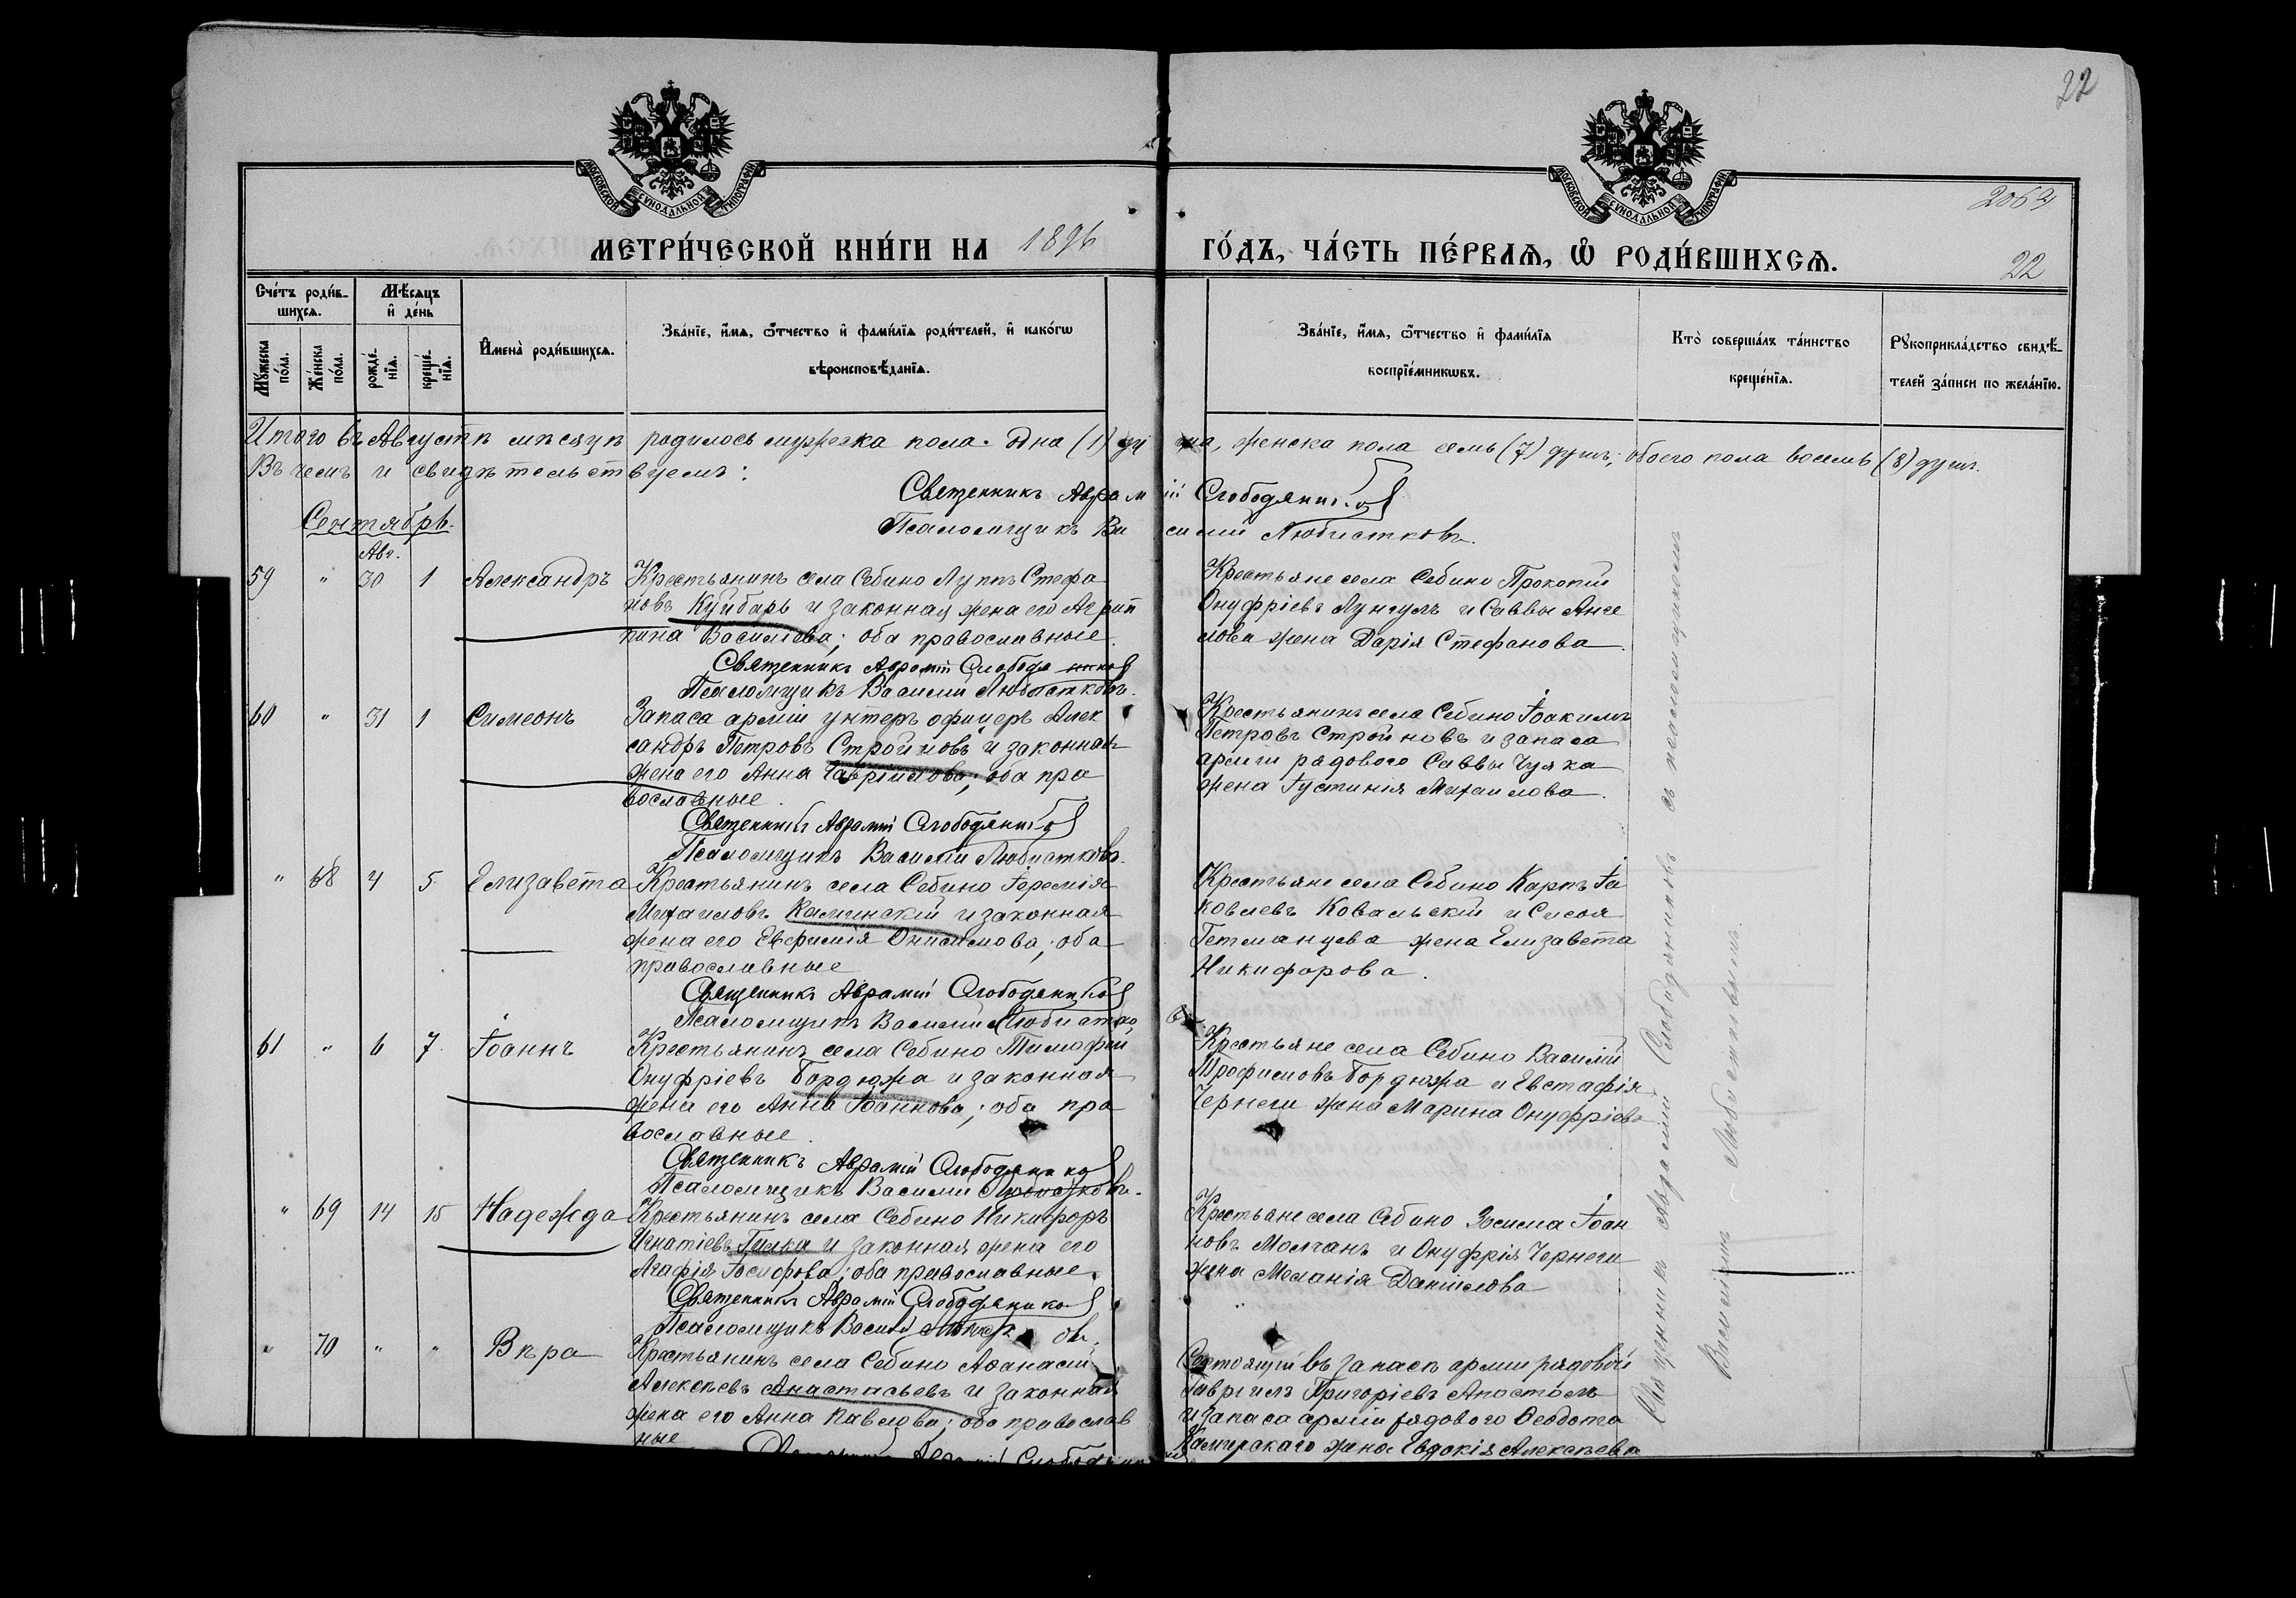 22
МОСКОВСКОЙ СѴНОДАЛЬНОЙ ТИПОГРАФІИ
МОСКОВСКОЙ СѴНОДАЛЬНОЙ ТИПОГРАФІИ
2064
МЕТРИ́ЧЕСКОЙ КНИ́ГИ НА 1896 ГО́ДЪ, ЧА́СТЬ ПЕ́РВАѦ, Ѽ РОДИ́ВШИХСѦ.
22
Сче́тъ роди́в-
шихсѧ.
Му́жеска
по́ла.
Же́нска
по́ла.
Мѣ́сѧцъ
и҆ де́нь
рожде́-
нїѧ.
креще́-
нїѧ.
И҆мена̀ роди́вшихсѧ.
Зва́нїе, и҆́мѧ, ѻ҆́тчество и҆ фами́лїѧ роди́телей, и҆ како́гѡ
вѣроисповѣ́данїѧ.
Зва́нїе, и҆́мѧ, ѻ҆́тчество и҆ фами́лїѧ
воспрїе́мникѡвъ.
Кто̀ соверша́лъ та́инство
креще́нїѧ.
Рꙋкоприкла́дство свидѣ́-
телей за́писи по жела́нїю.
Итого въ Августѣ мѣсяцѣ родилось мужеска пола одна (1) душа, женска пола семь (7) душъ; обоего пола восемь (8) душъ.
Въ чемъ и свидѣтельствуемъ:
Священникъ Аврамій Слободяников
Псаломщикъ Василій Любистковъ.
Сентябрь.
Авг.
59 " 30 1 Александръ
Крестьянинъ села Себино Луппъ Стефа
новъ Куйбарь и законная жена его Агрип
пина Василіева; оба православные.
Священникъ Аврамій Слободяников
Псаломщикъ Василій Любистковъ.
Крестьяне села Себино Прокопій
Онуфріевъ Лунгулъ и Саввы Анге
лова жена Дарія Стефанова.
60 " 31 1 Симеонъ
Запаса арміи унтеръ офицеръ Алек
сандръ Петровъ Стройновъ и законная
жена его Анна Гавріилова; оба пра
вославные.
Священникъ Аврамій Слободяников
Псаломщикъ Василій Любистковъ.
Крестьянинъ села Себино Іоакимъ
Петровъ Стройновъ и запаса
арміи рядового Саввы Чуяка
жена Іустинія Михаилова.
" 68 4 5 Елизавета
Крестьянинъ села Себино Іеремія
Михаиловъ Калинскій и законная
жена его Евфимія Онисимова; оба
православные
Священникъ Аврамій Слободяников
Псаломщикъ Василій Любистковъ
Крестьяне села Себино Карпъ Іа
ковлевъ Ковальскій и Сисоя
Гетманцева жена Елизавета
Никифорова.
61 " 6 7 Іоаннъ
Крестьянинъ села Себино Тимофей
Онуфріевъ Бордюжа и законная
жена его Анна Іоаннова; оба пра
вославные.
Священникъ Аврамій Слободяников
Псаломщикъ Василій Любистковъ.
Крестьяне села Себино Василій
Трофимовъ Бордюжа и Евстафія
Чернеги жена Марина Онуфріева
" 69 14 15 Надежда
Крестьянинъ села Себино Никифоръ
Игнатіевъ Гилка и законная жена его
Агафія Іосифова; оба православные.
Священникъ Аврамій Слободяников
Псаломщикъ Василій
Крестьяне села Себино Зосима Іоан
новъ Молчанъ и Онуфрія Чернеги
жена Меланія Даніилова
" 70 " " Вѣра
Крестьянинъ села Себино Аѳанасій
Алексѣевъ Анастасьевъ и законная
жена его Анна Павлова; оба православ
ные
Состоящій въ запасѣ арміи рядовой
Гавріилъ Григоріевъ Апостолъ
и запаса арміи рядового Ѳеодота
жена Евдокія Алексѣева
Священникъ Аврамій Слободяниковъ съ псаломщикомъ
Василіемъ Любистковымъ.